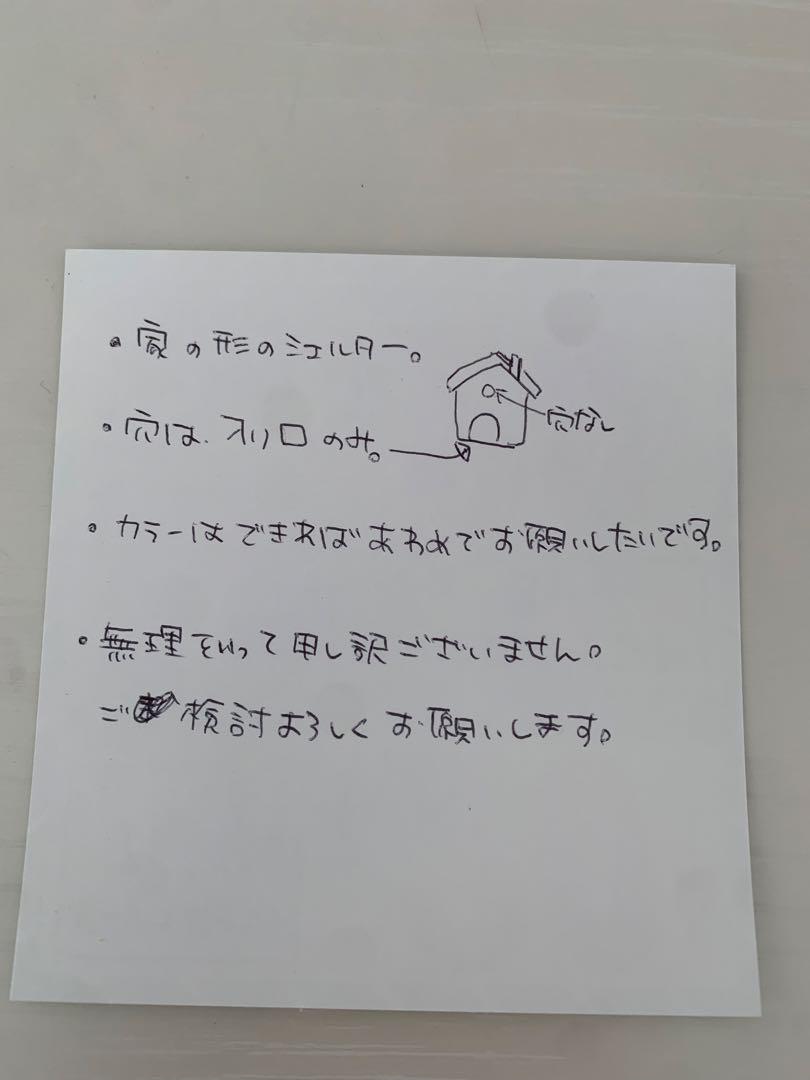 ・家の形のシェルター。
・穴は、入り口のみ。
穴なし
・カラーはできればあわめでお願いしたいです。
・無理をいって申し訳ございません。
ご検討よろしくお願いします。